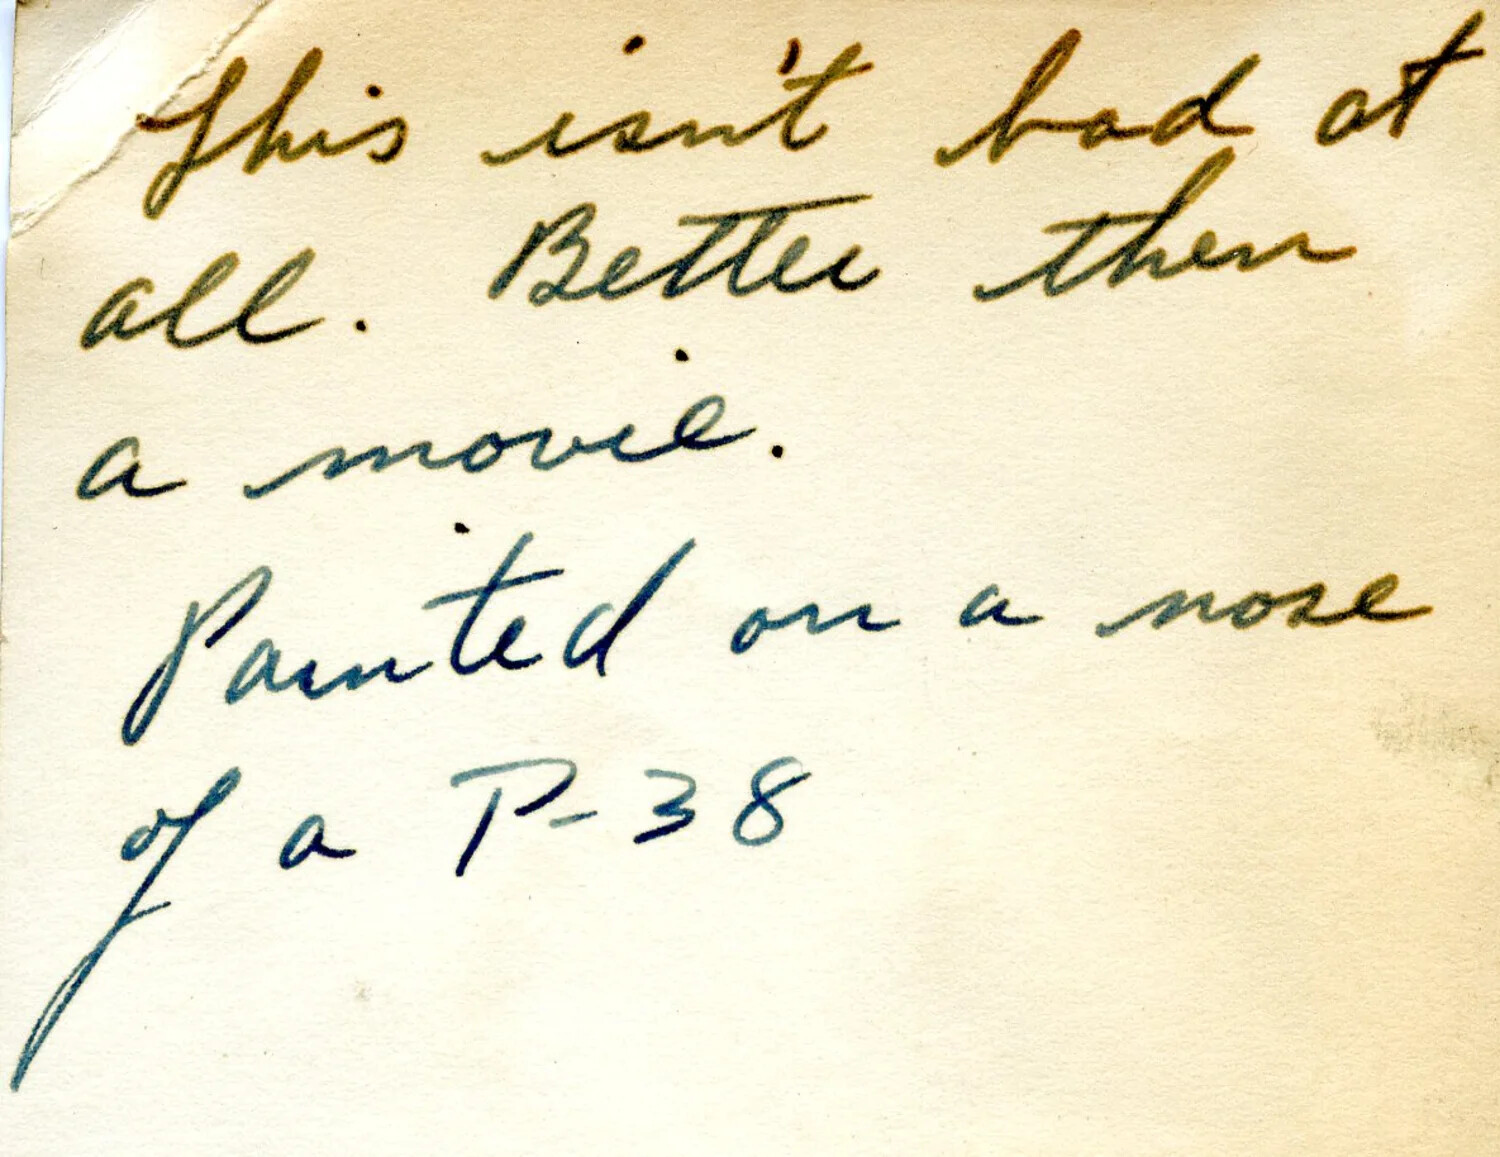 This isn't bad at
all. Better then
a movie.
Painted on a nose
of a P-38